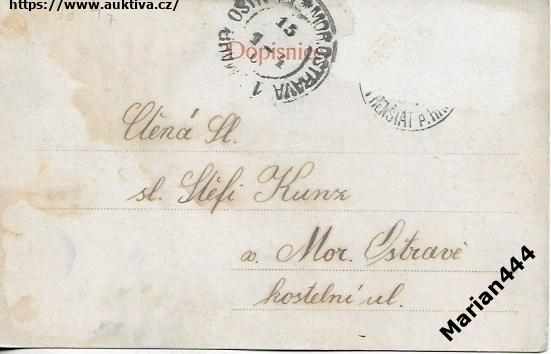 https://www.auktiva.cz/
MOR. OSTRAVA 1
15
Dopisnice
P. RH
Ctěná Sl.
sl. Stéfi Kunz
v. Mor. Ostravě
kostelní ul.
Marian444